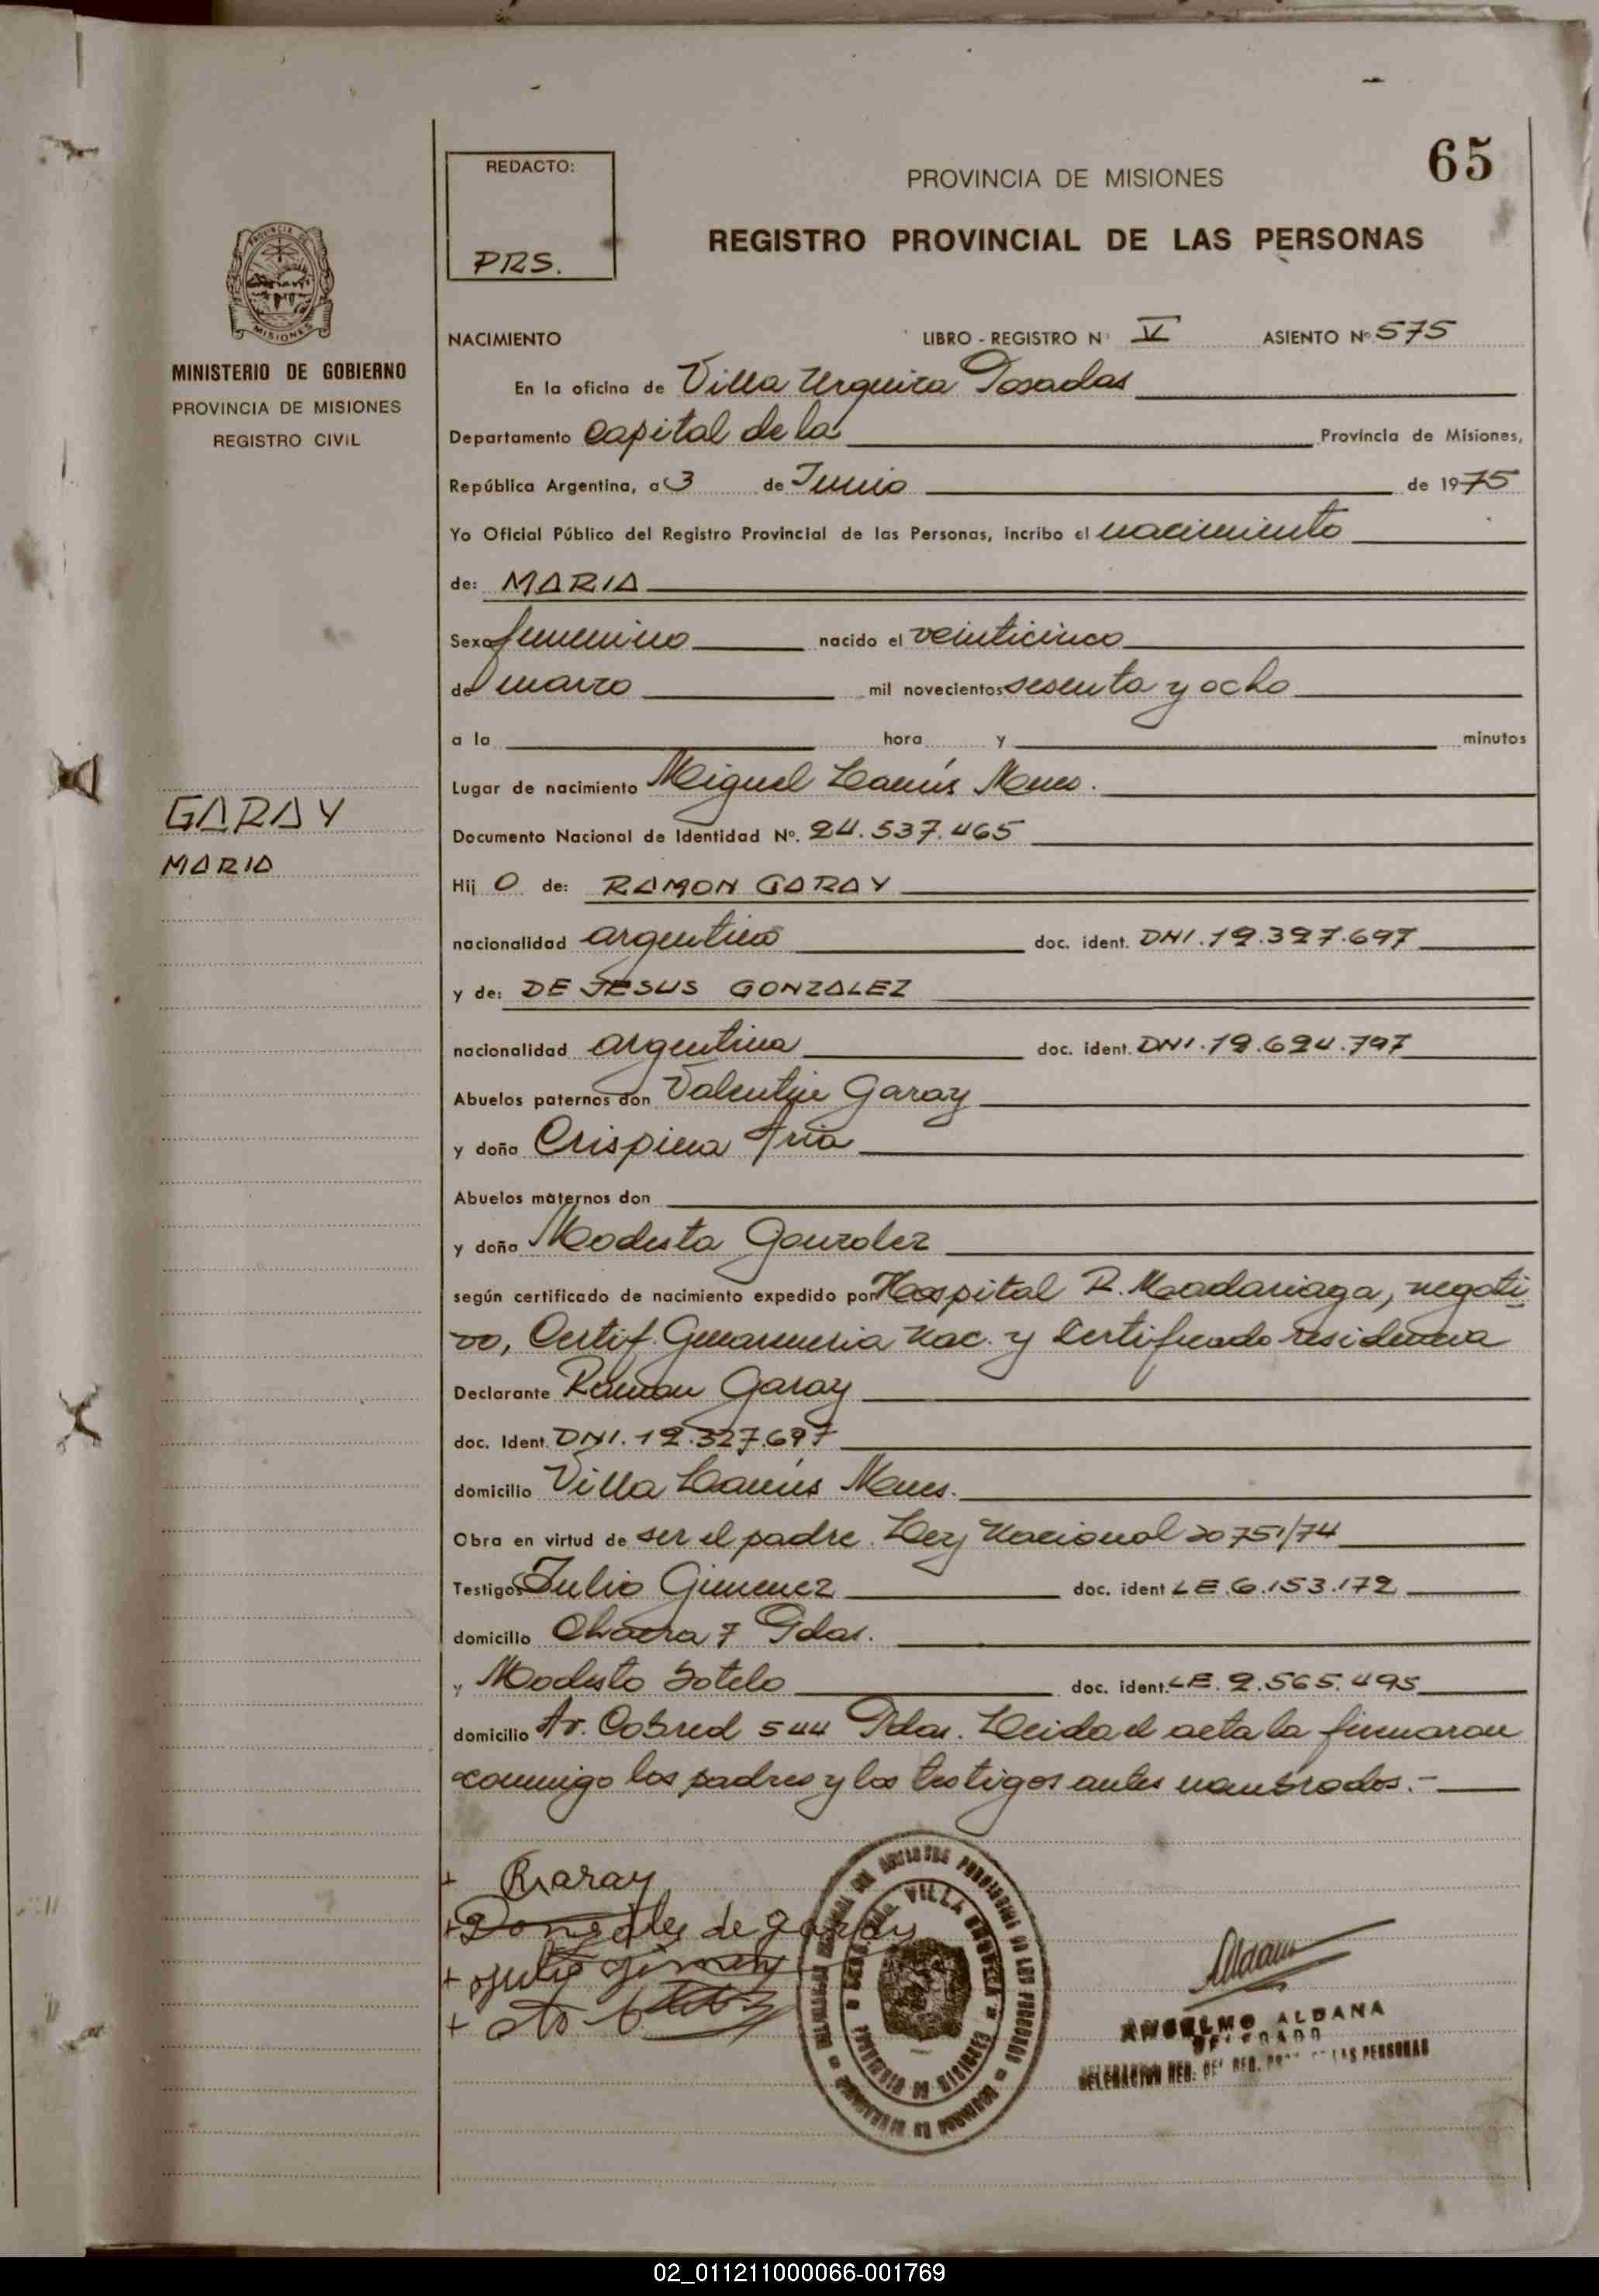 65
REDACTO:
PRS.
PROVINCIA DE MISIONES
REGISTRO PROVINCIAL DE LAS PERSONAS
PROVINCIA DE
MISIONES
MINISTERIO DE GOBIERNO
PROVINCIA DE MISIONES
REGISTRO CIVIL
GARAY
MARIA
NACIMIENTO LIBRO - REGISTRO Nº V ASIENTO Nº 575
En la oficina de Villa Urquiza Posadas
Departamento Capital de la Provincia de Misiones,
República Argentina, a 3 de Junio de 1975
Yo Oficial Público del Registro Provincial de las Personas, incribo el nacimiento
de: MARIA
Sexo femenino nacido el veinticinco
de marzo mil novecientos sesenta y ocho
a la hora y minutos
Lugar de nacimiento Miguel Lanús Mnes.
Documento Nacional de Identidad Nº. 24.537.465
Hij O de: RAMON GARAY
nacionalidad argentino doc. ident. DNI. 12.327.697
y de: DE JESUS GONZALEZ
nacionalidad argentina doc. ident. DNI. 12.624.797
Abuelos paternos don Valentin Garay
y doña Crispina
Abuelos maternos don
y doña Modesta Gonzalez
según certificado de nacimiento expedido por Hospital R. Madariaga, negati
vo, Certif. Gendarmeria Nac. y Certificado residencia
Declarante Ramon Garay
doc. Ident. DNI. 12.327.697
domicilio Villa Lanús Mnes.
Obra en virtud de ser el padre. Ley Nacional 20751/74
Testigos Julio Gimenez doc. ident LE. 6.153.172
domicilio Chacra 7 Pdas.
y Modesto Sotelo doc. ident. LE. 2.565.495
domicilio Av. Cabred 544 Pdas. Leida el acta la firmaron
conmigo los padres y los testigos antes nombrados.-
+ RGaray
+ Gonzales de garay
+ Julio Gimenez
+
VILLA URQUIZA
ANSELMO ALDANA
DELEGADO
02_011211000066-001769